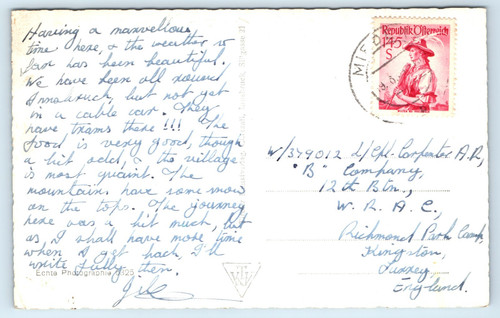 Having a marvellous
time here, & the weather so
far has been beautiful.
We have been all round
Innsbruck, but not yet
in a cable car. They
have trams there!!! The
food is very good, though
a bit odd, & the village
is most quaint. The
mountains have some snow
on the tops. The journey
here was a bit much, but
as I shall have more time
when I get back, I'll
write fully then.
Echte Photographie
Republik Österreich
1.45
S
W/379012 L/Cpl. Carpenter A.R,
"B" Company,
12th Btn.,
W. R. A. C,
Richmond Park Camp,
Kingston,
Surrey,
England.